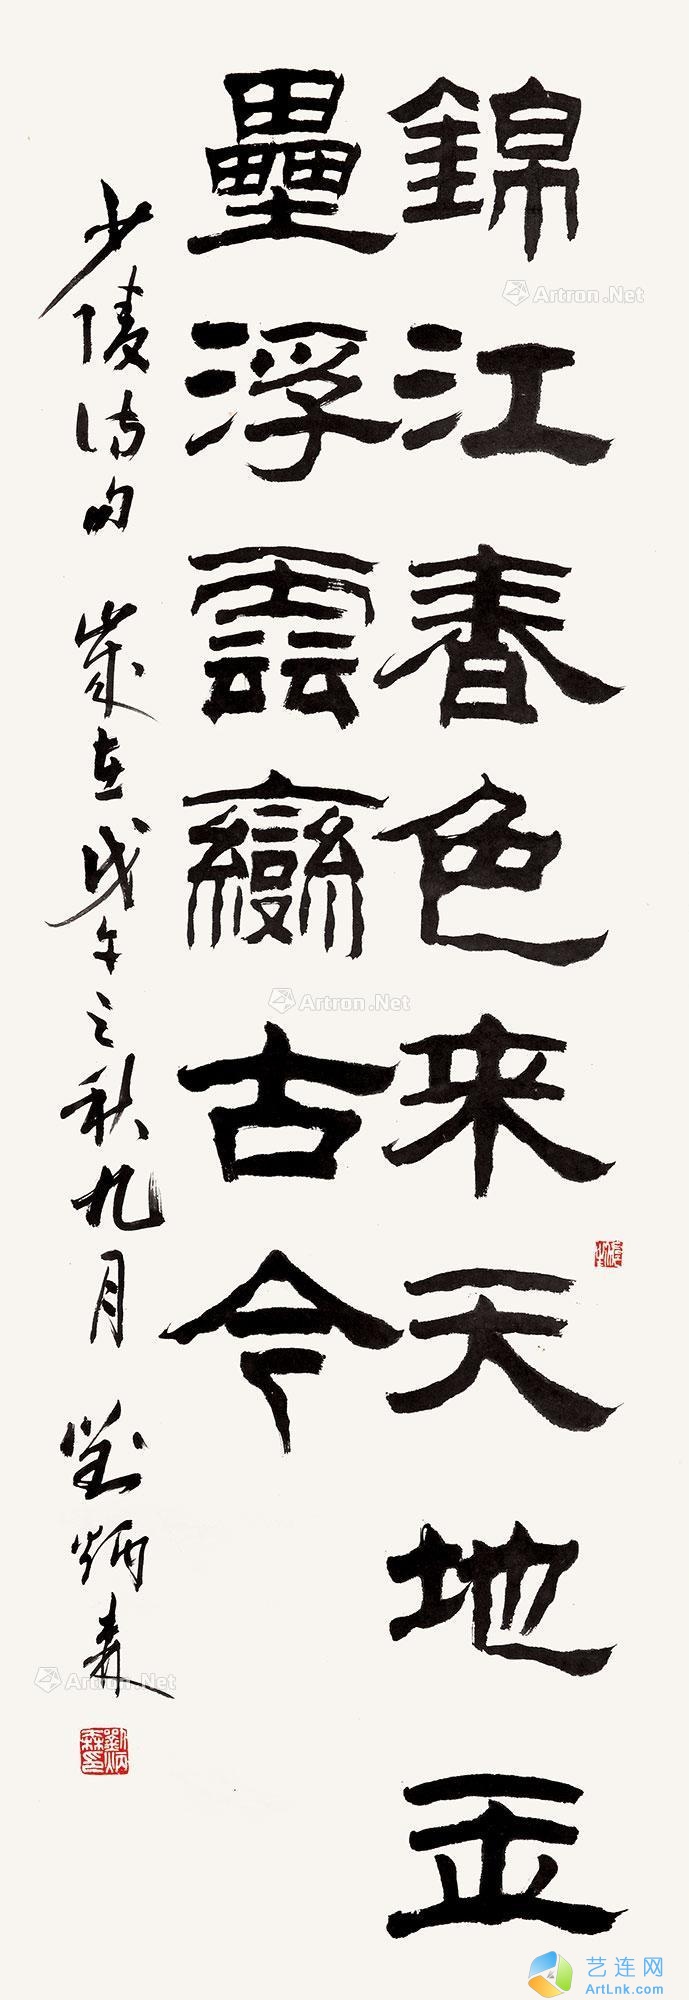 錦江春色来天地玉
壘浮雲變古今
少陵诗句 岁在戊午之秋九月 刘炳森
劉炳森印
Artron.Net
Artron.Net
Artron.Net
艺连网
ArtLnk.com